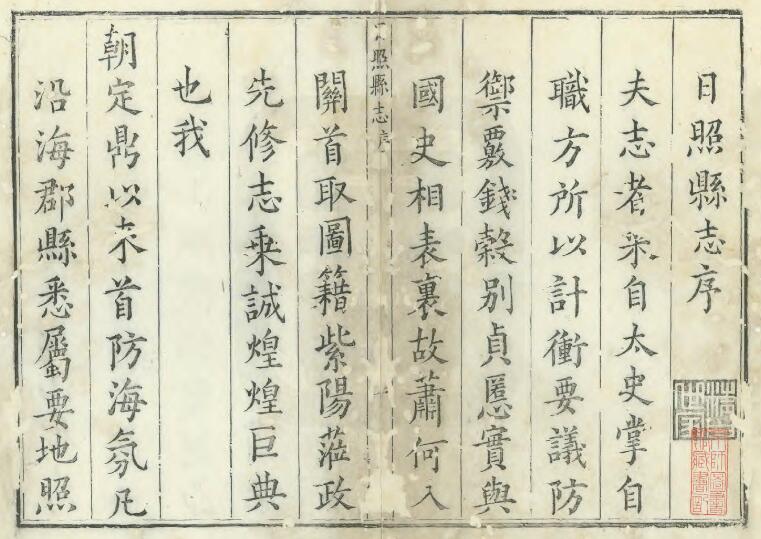 日照縣志序
夫志者采自太史掌自
職方所以計衝要議防
禦覈錢穀別貞慝實與
國史相表裏故蕭何入
日照縣志序
關首取圖籍紫陽蒞政
先修志乗誠煌煌巨典
也我
朝定鼎以来首防海氛凡
沿海郡縣悉屬要地照